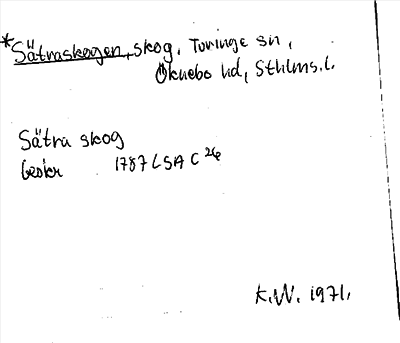 *Sätraskogen, skog, Turinge sn,
Öknebo hd, Sthlms.l.
Sätra skog
beskr 1787 LSA C 26
K.W. 1971.